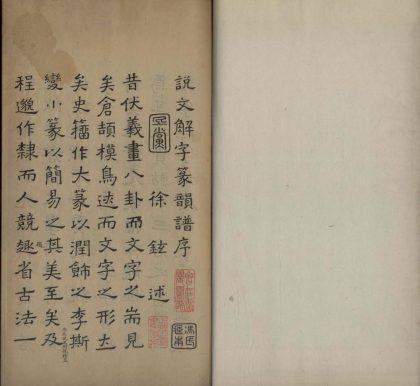 説文解字篆韻譜序
徐鉉述
昔伏羲畫八卦而文字之耑見
矣倉頡模鳥迹而文字之形立
矣史籀作大篆以潤飾之李斯
變小篆以簡易之其美至矣及
程邈作隸而人競趣省古法一
馮氏